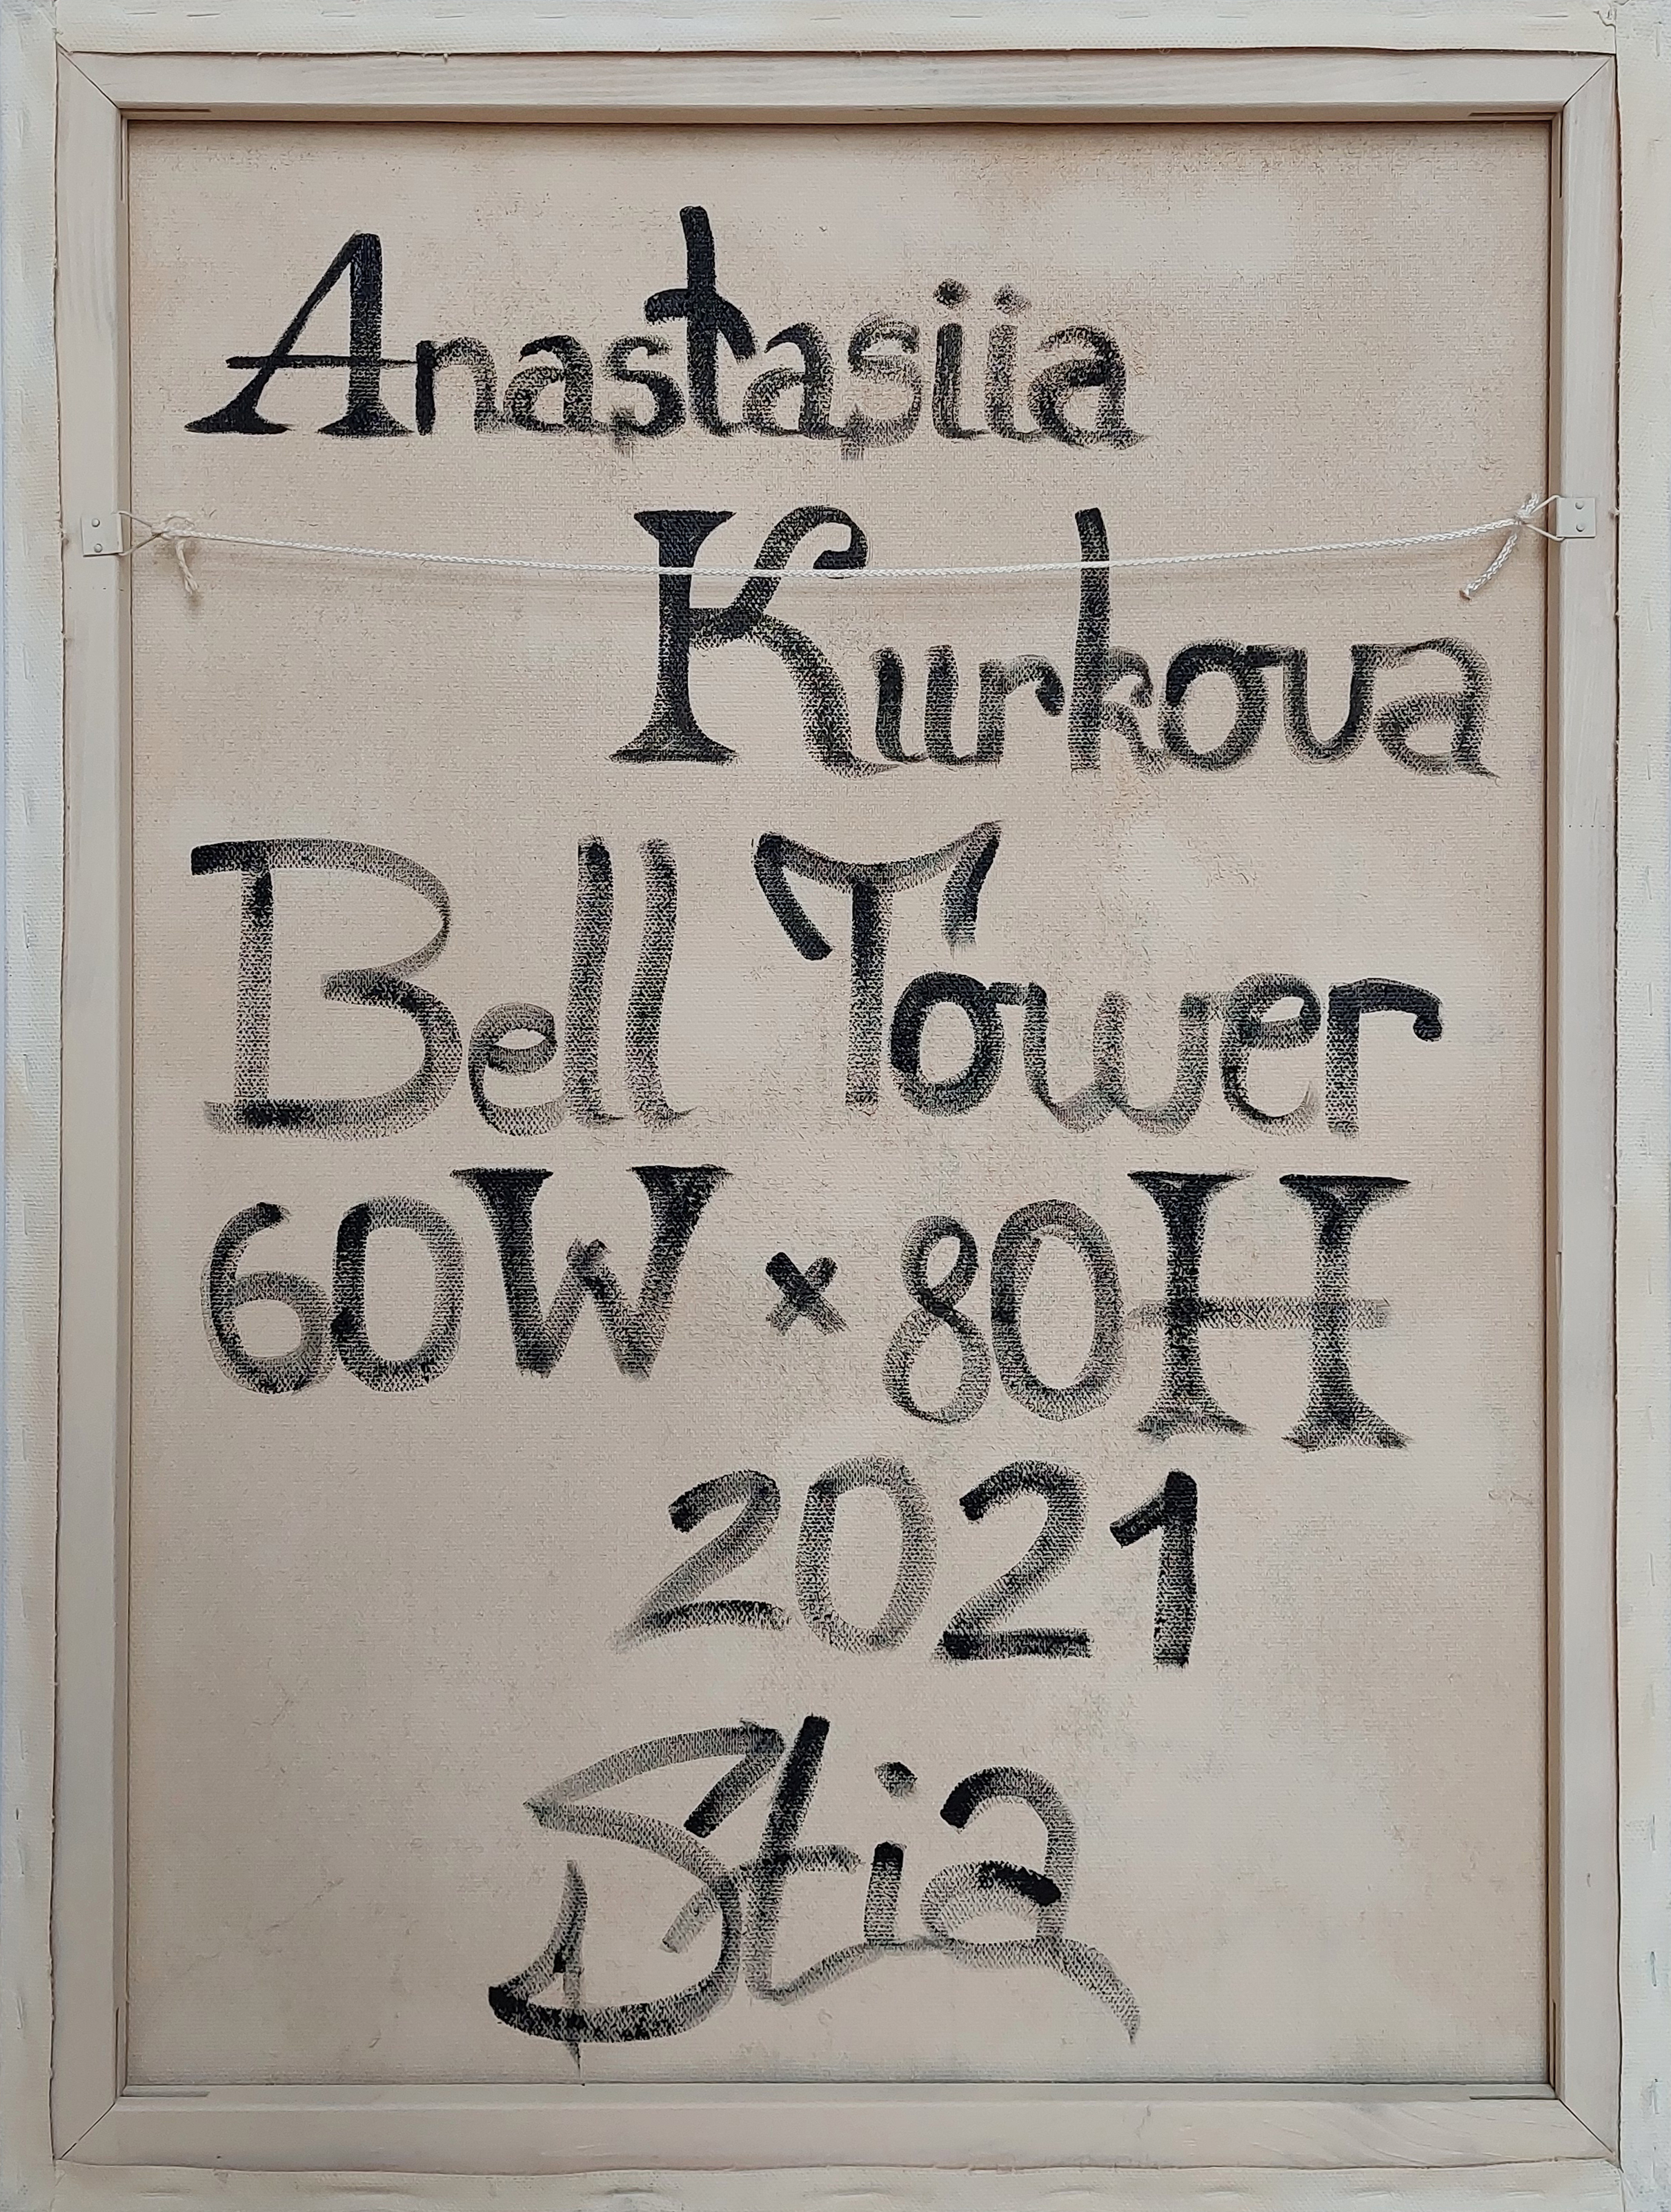 Anastasiia
Kurkova
Bell Tower
60W × 80H
2021
Stia